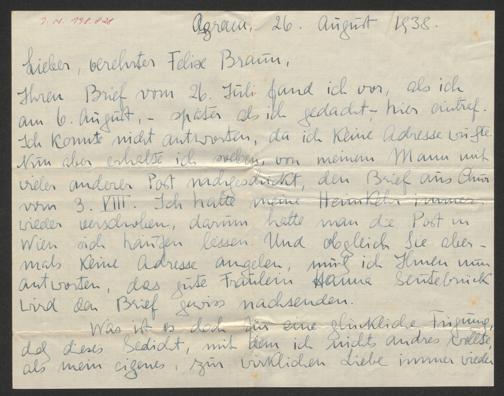 J. N. 198.828
Agram, 26. August 1938.
Lieber, verehrter Felix Braun,
Ihren Brief vom 26. Juli fand ich vor, als ich
am 6. August, – später als ich gedacht – hier eintraf.
Ich konnte nicht antworten, da ich keine Adresse wußte.
Nun aber erhalte ich soeben, von meinem Mann mit
vieler anderer Post nachgeschickt, den Brief aus
vom 3. VIII. Ich hatte meine Heimkehr immer
wieder verschoben, darum hatte man die Post in
Wien sich häufen lassen. Und obgleich Sie aber-
mals keine Adresse angeben, muß ich Ihnen nun
antworten, das gute Fräulein Hanna
wird den Brief gewiss nachsenden.
Was ist es doch für eine glückliche Fügung,
daß dieses Gedicht, mit dem ich nichts andres wollte,
als mein eigenes, zur wirklichen Liebe immer wieder